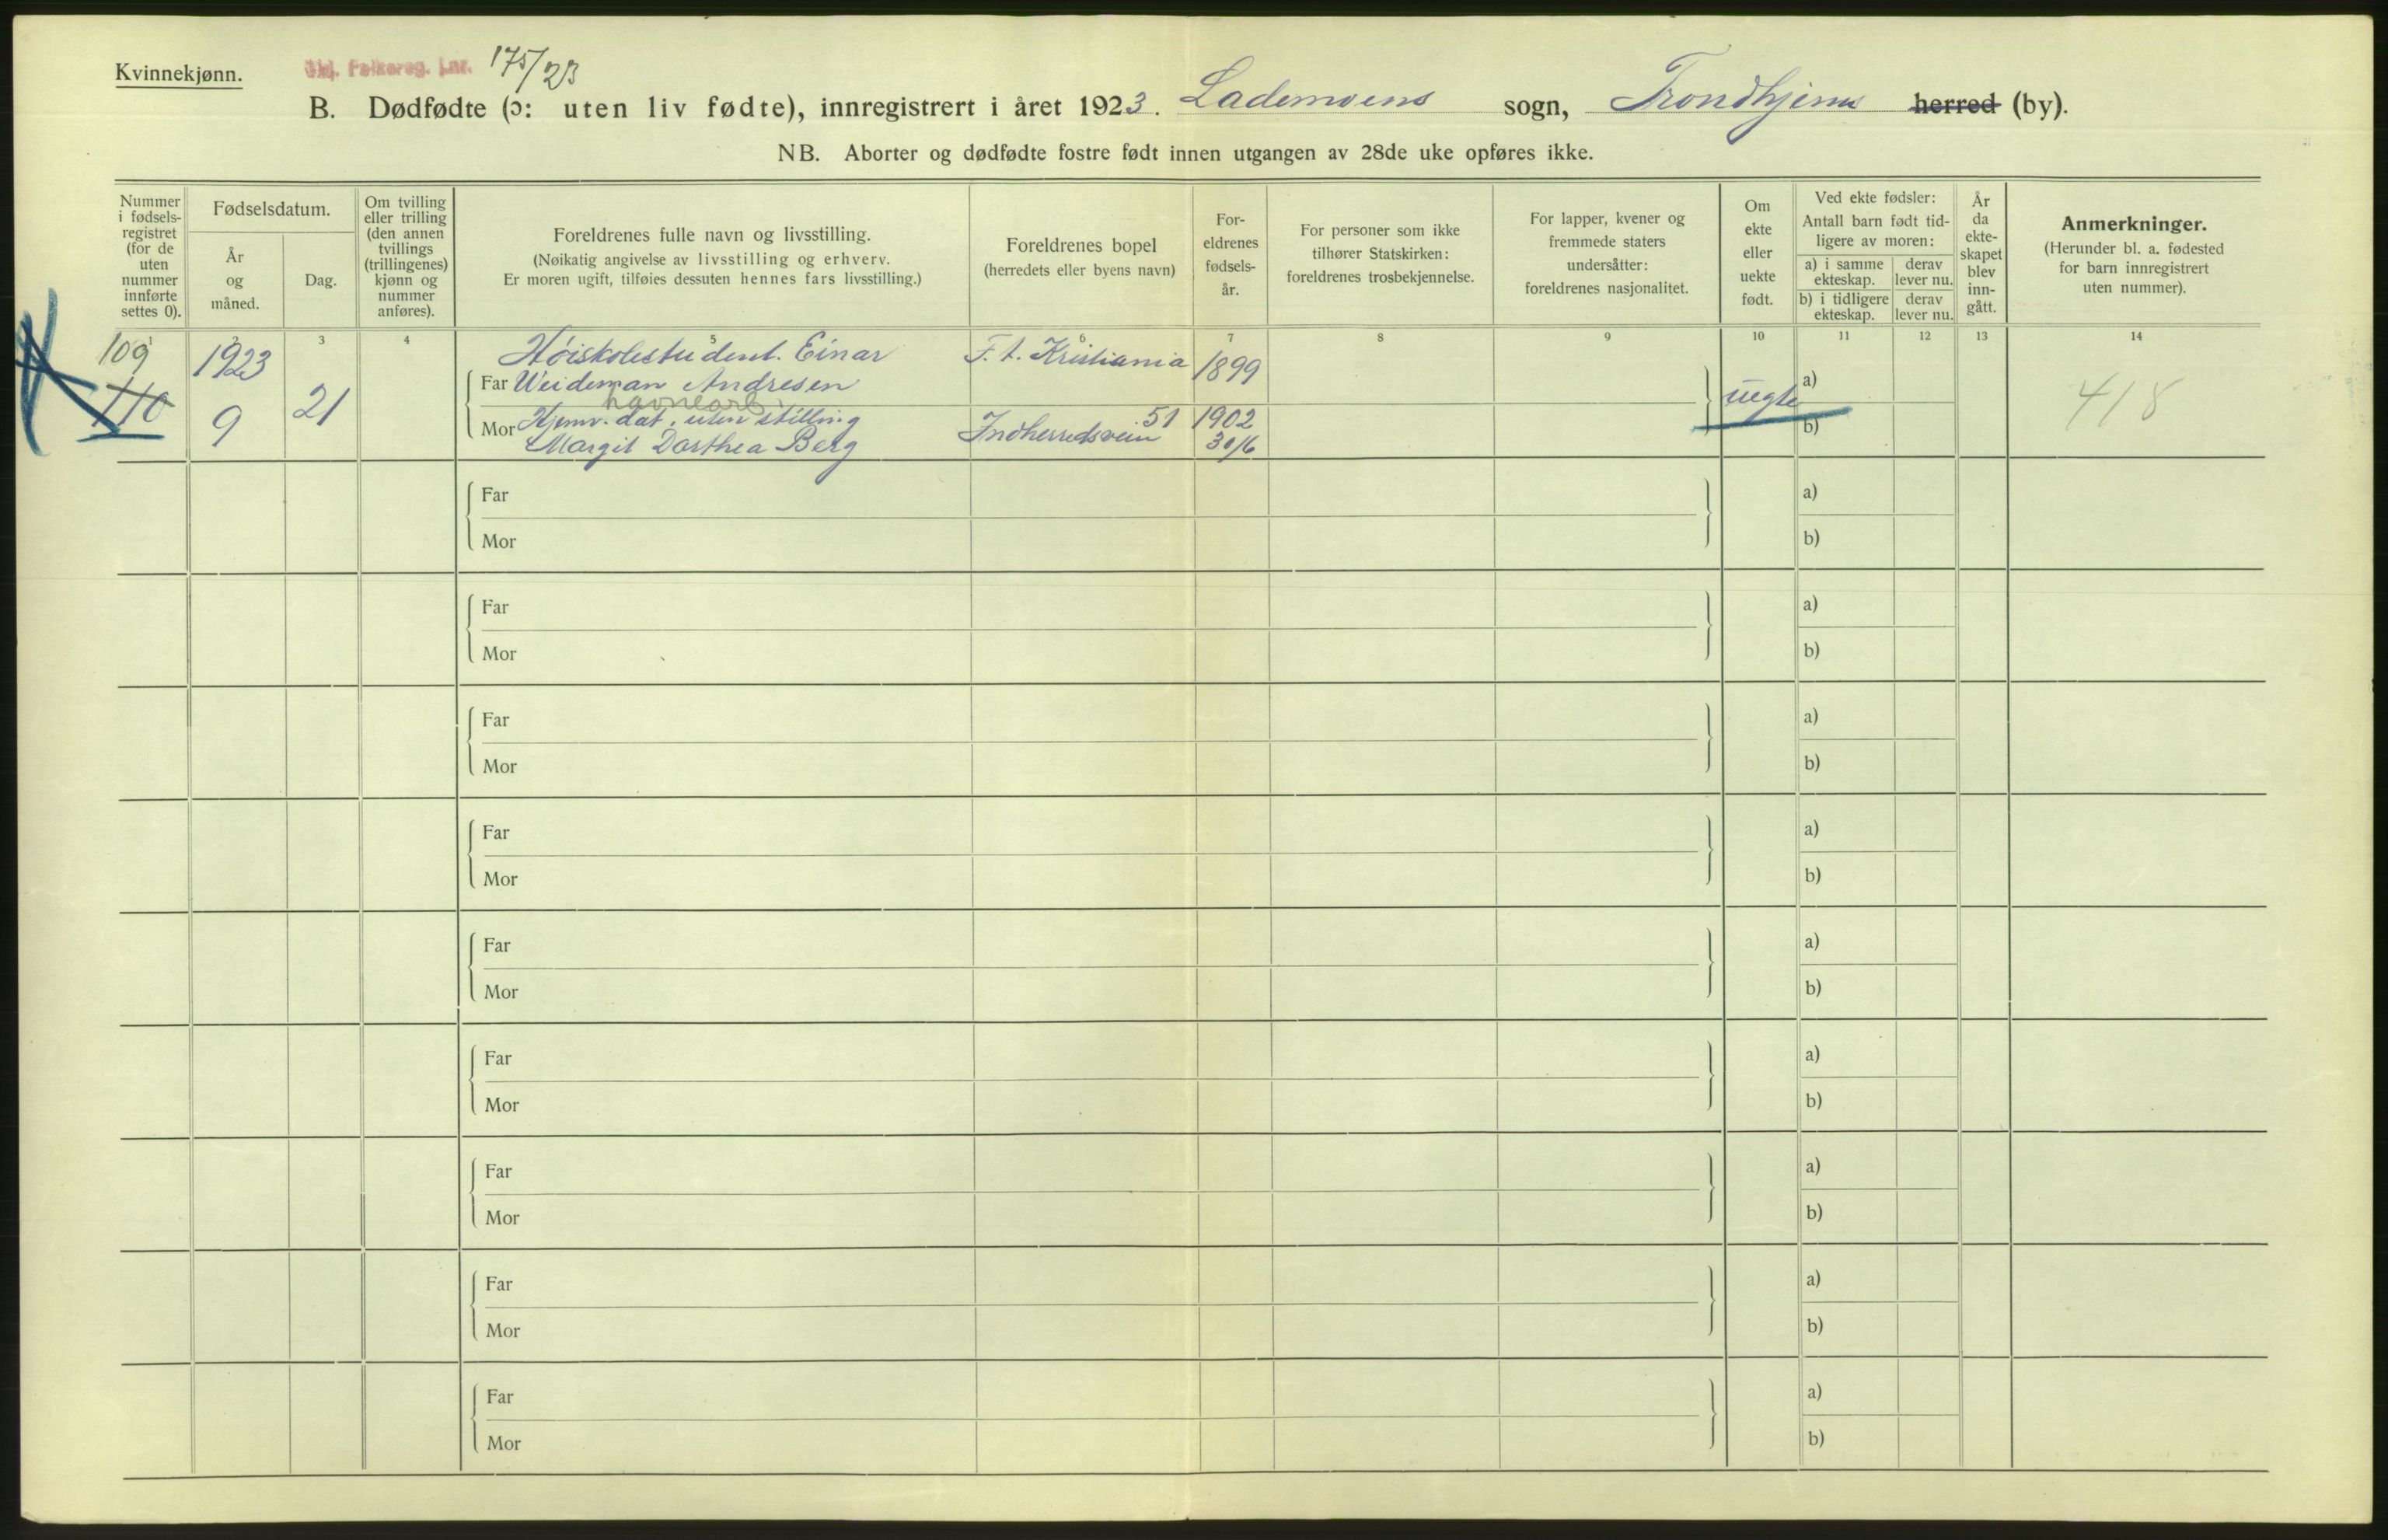 Kvinnekjønn.
Folkereg. j.nr. 175/23
B. Dødfødte (ɔ: uten liv fødte), innregistrert i året 1923. Lademoens sogn, Trondhjems herred (by).
NB. Aborter og dødfødte fostre født innen utgangen av 28de uke opføres ikke.
Nummer i fødsels-registret (for de uten nummer innførte settes 0).
Fødselsdatum.
År og måned.
Dag.
Om tvilling eller trilling (den annen tvillings (trillingenes) kjønn og nummer anføres).
Foreldrenes fulle navn og livsstilling.
(Nøikatig angivelse av livsstilling og erhverv.
Er moren ugift, tilføies dessuten hennes fars livsstilling.)
Foreldrenes bopel
(herredets eller byens navn)
For-eldrenes fødsels-år.
For personer som ikke tilhører Statskirken: foreldrenes trosbekjennelse.
For lapper, kvener og fremmede staters undersåtter: foreldrenes nasjonalitet.
Om ekte eller uekte født.
Ved ekte fødsler:
Antall barn født tid-ligere av moren:
a) i samme ekteskap.
derav lever nu.
b) i tidligere ekteskap.
derav lever nu.
År da ekte-skapet blev inn-gått.
Anmerkninger.
(Herunder bl. a. fødested for barn innregistrert uten nummer).
1 2 3 4 5 6 7 8 9 10 11 12 13 14
109 1923 Høiskolestudent. Einar F. t. Kristiania 1899
Far Weideman Andresen a)
110 9 21 havnearb. uegte 418
Mor Hjemv. dat. uten stilling 51 1902 b)
Margit Dorthea Berg Indherredsvein 30/6
Far a)
Mor b)
Far a)
Mor b)
Far a)
Mor b)
Far a)
Mor b)
Far a)
Mor b)
Far a)
Mor b)
Far a)
Mor b)
Far a)
Mor b)
Far a)
Mor b)